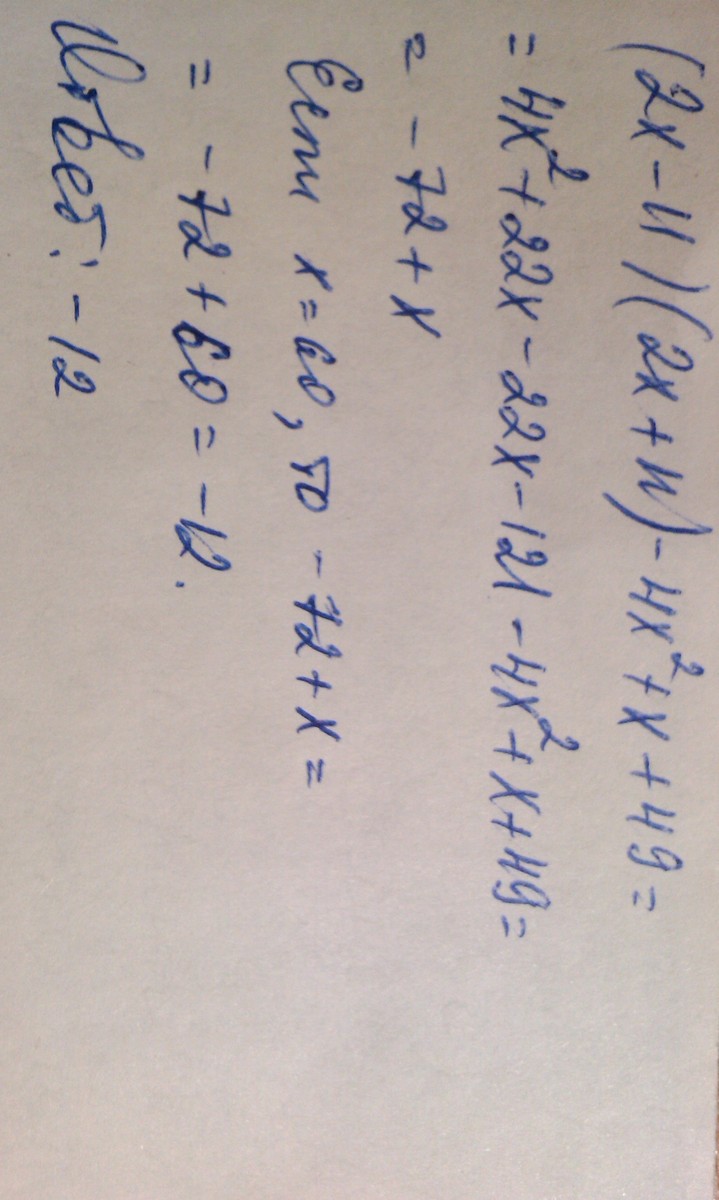 (2x-11)(2x+11)-4x²+x+49=
=4x²+22x-22x-121-4x²+x+49=
= -72+x
Если x=60, то -72+x=
= -72+60= -12.
Ответ: -12